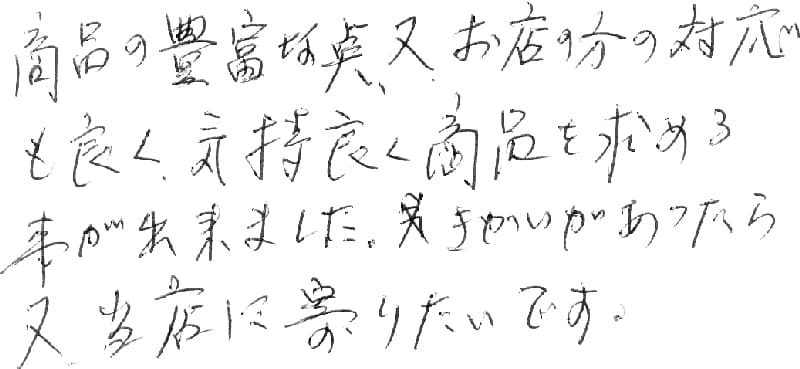 商品の豊富な点、又、お店の方の対応
も良く、気持良く商品を求める
事が出来ました。きかいがあったら
又、当店に寄りたいです。